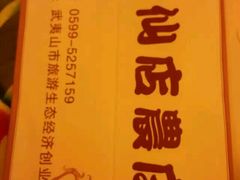 仙店農
武夷山市旅游生态经济创业
0599-5257159